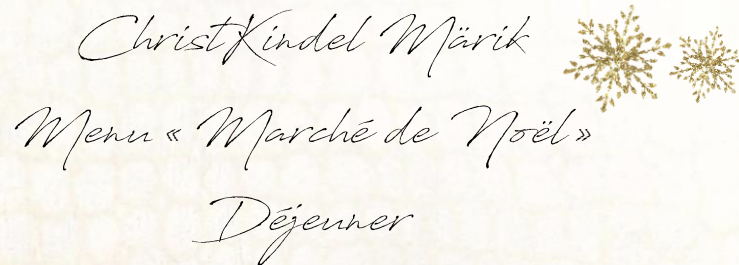 ChristKindel Märik
Menu « Marché de Noël »
Déjeuner